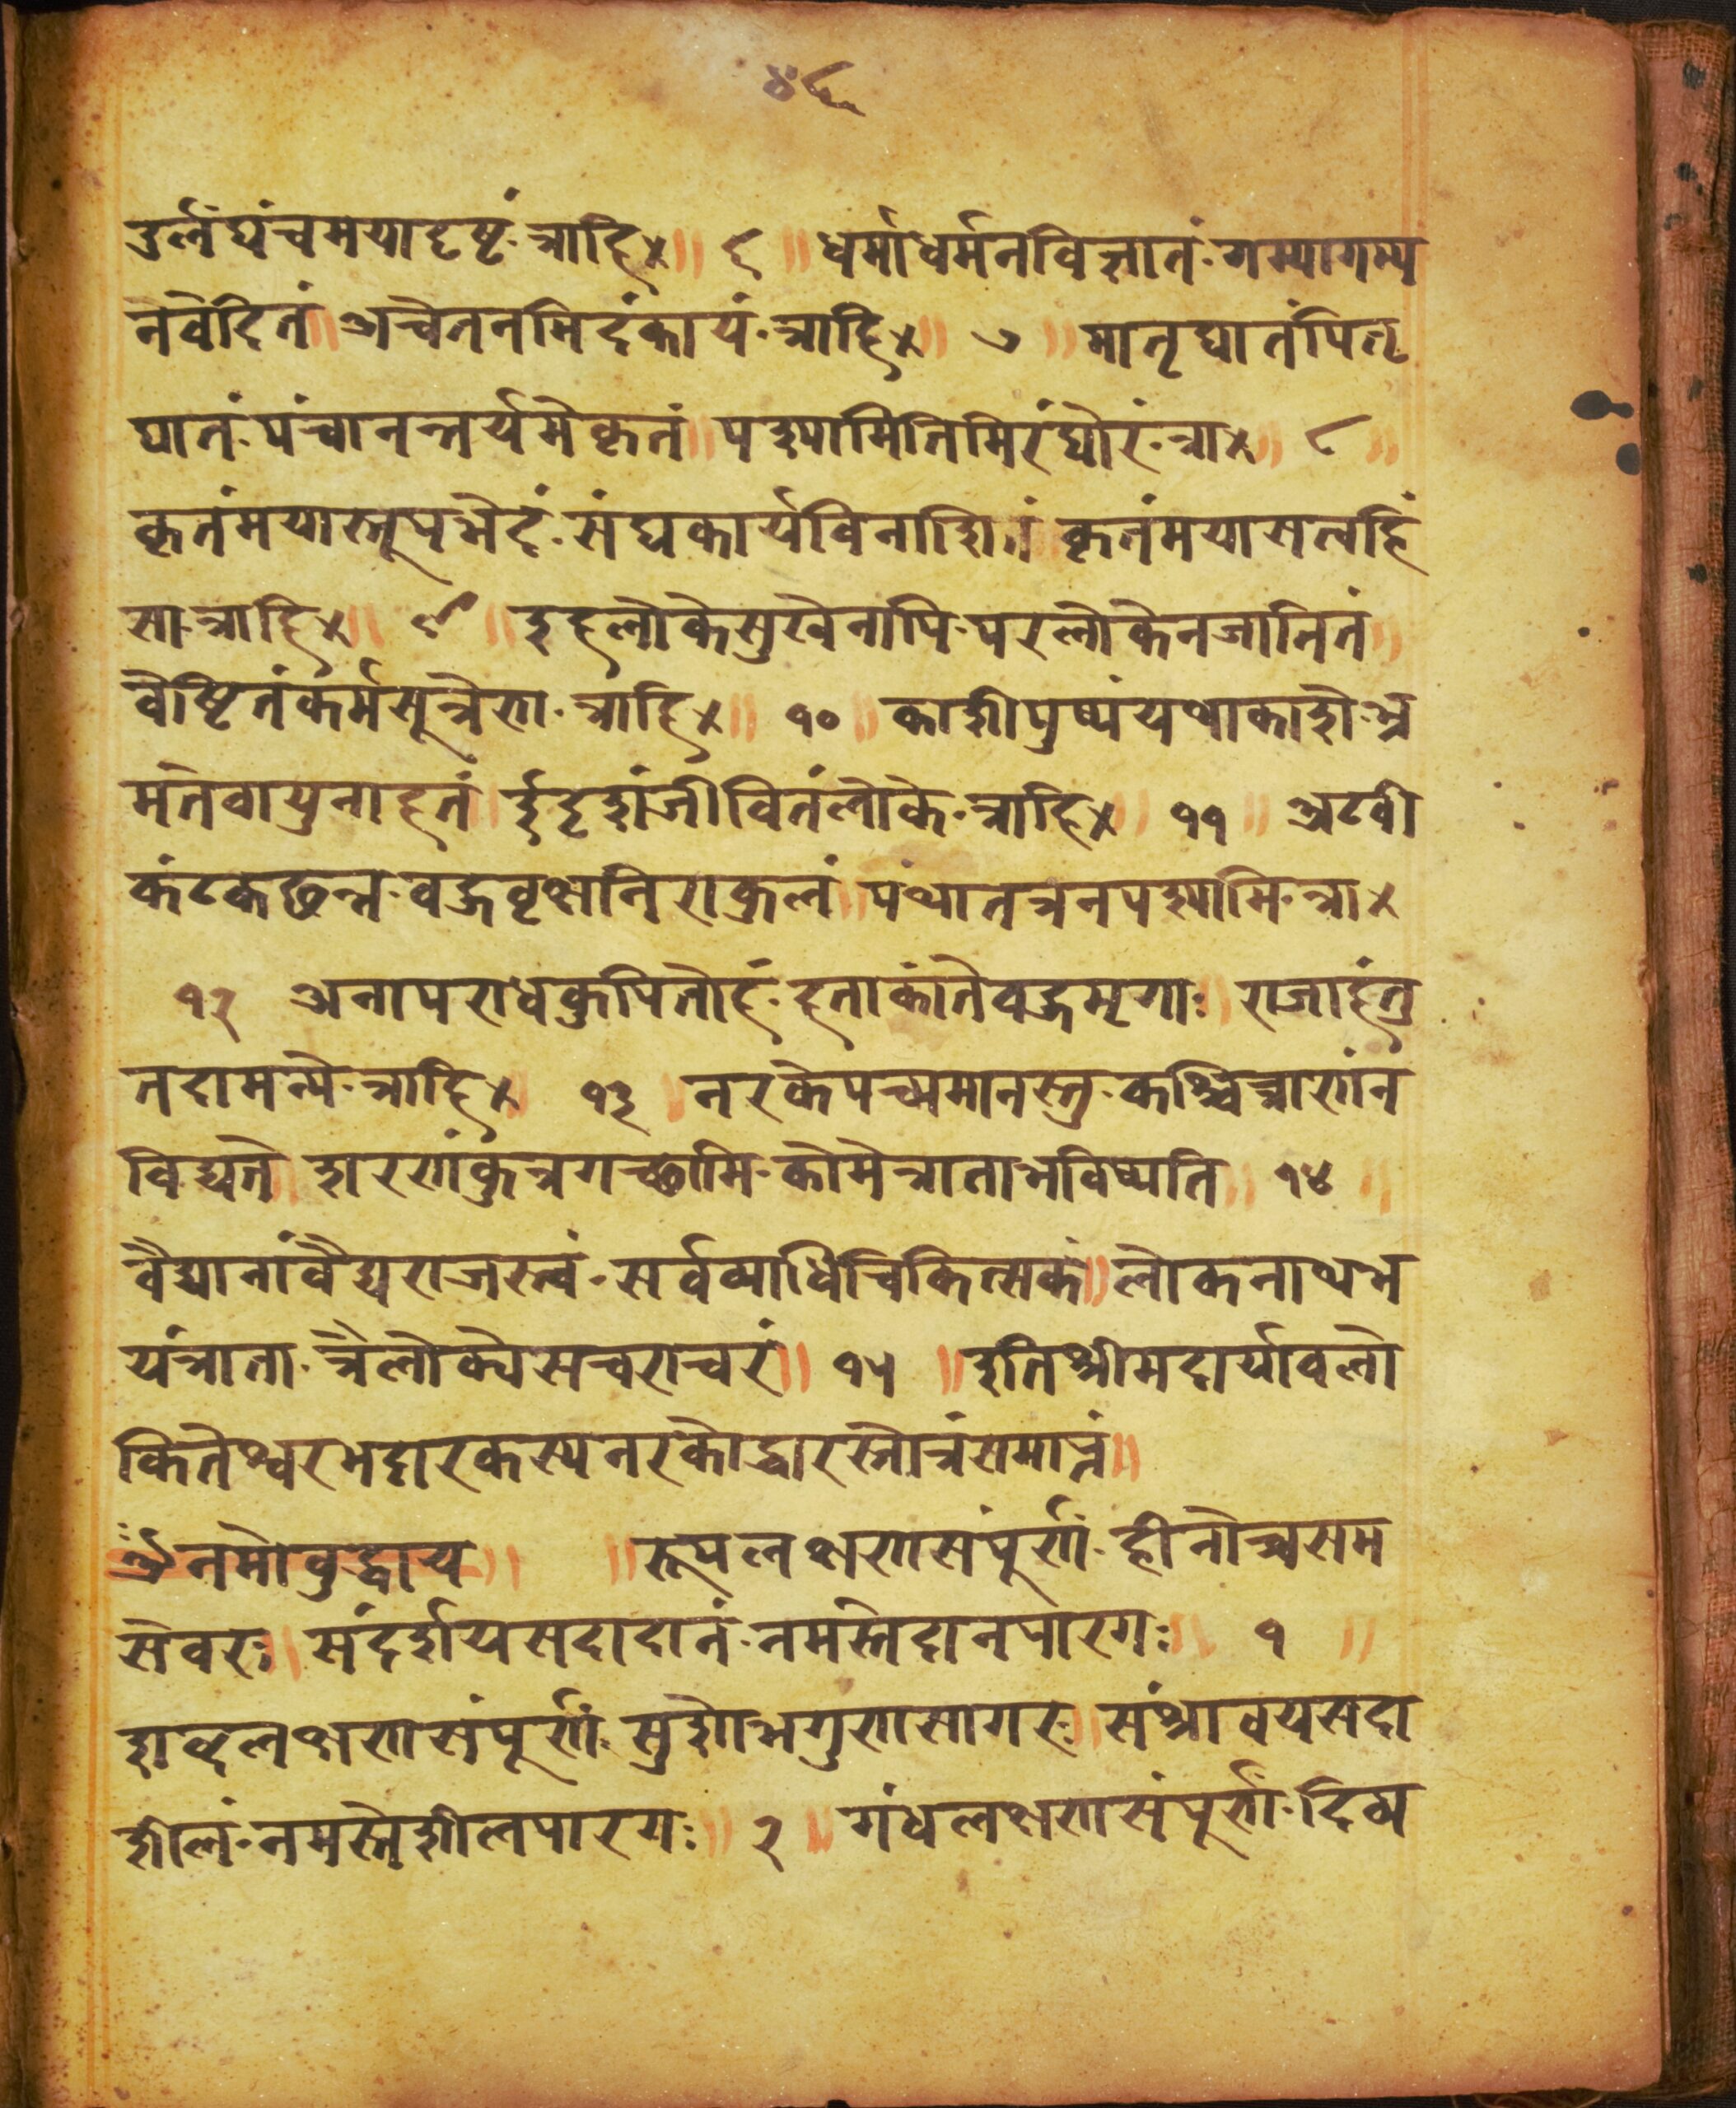 ४६
दुर्लंघंचमयादृष्टं·त्राहि४॥ ६ ॥ धर्माधर्मनविज्ञातं·गम्यागम्य
नैवेदितं॥ अचेतनमिदंकायं·त्राहि४॥ ७ ॥ मातृघातंपितृ
घातं·पंचानन्तर्यमेकृतं॥ पश्यामितिमिरंघोरं·त्रा४॥ ८ ॥
कृतंमयास्तूपभेदं·संघकार्यविनाशितं कृतंमयासत्वहिं
सा·त्राहि४॥ ९ ॥ इहलोकेसुखेनापि·परलोकेनजानितं॥
वेष्टितंकर्मसूत्रेण·त्राहि४॥ १० ॥ काशीपुष्पंयथाकाशे·भ्र
मतेवायुनाहतं॥ ईदृशंजीवितंलोके·त्राहि४॥ ११ ॥ अटवी
कंटकछन्न·वद्गवृक्षनिराकुलं॥ पंथातत्रनपश्यामि·त्रा४
१२ अनापराधकुपितोहं·हताकांतेवद्गमृगाः॥ राजाहंतु
तदामन्ये·त्राहि४॥ १३ ॥ नरकेपच्यमानस्तु·कश्चित्राणंन
विद्यते॥ शरणंकुत्रगच्छामि·कोमेत्राताभविष्यति॥ १४ ॥
वैद्यानांवैद्यराजस्त्वं·सर्वव्याधिचिकित्सकं॥ लोकनाथभ
यंत्राता·त्रैलोक्येसचराचरं॥ १५ ॥ इतिश्रीमदार्यावलो
कितेश्वरभट्टारकस्यनरकोद्धारस्तोत्रंसमाप्तं॥
ॐनमोबुद्धाय॥ ॥ रूपलक्षणसंपूर्णं·हीनोच्चसम
सेवरु॥ संदर्शयसदादानं·नमस्तेदानपारगः॥ १ ॥
शब्दलक्षणसंपूर्णं·सुशोभगुणसागरु॥ संश्रावयसदा
शीलं·नमस्तेशीलपारगः॥ २ ॥ गंधलक्षणसंपूर्णं·दिव्य